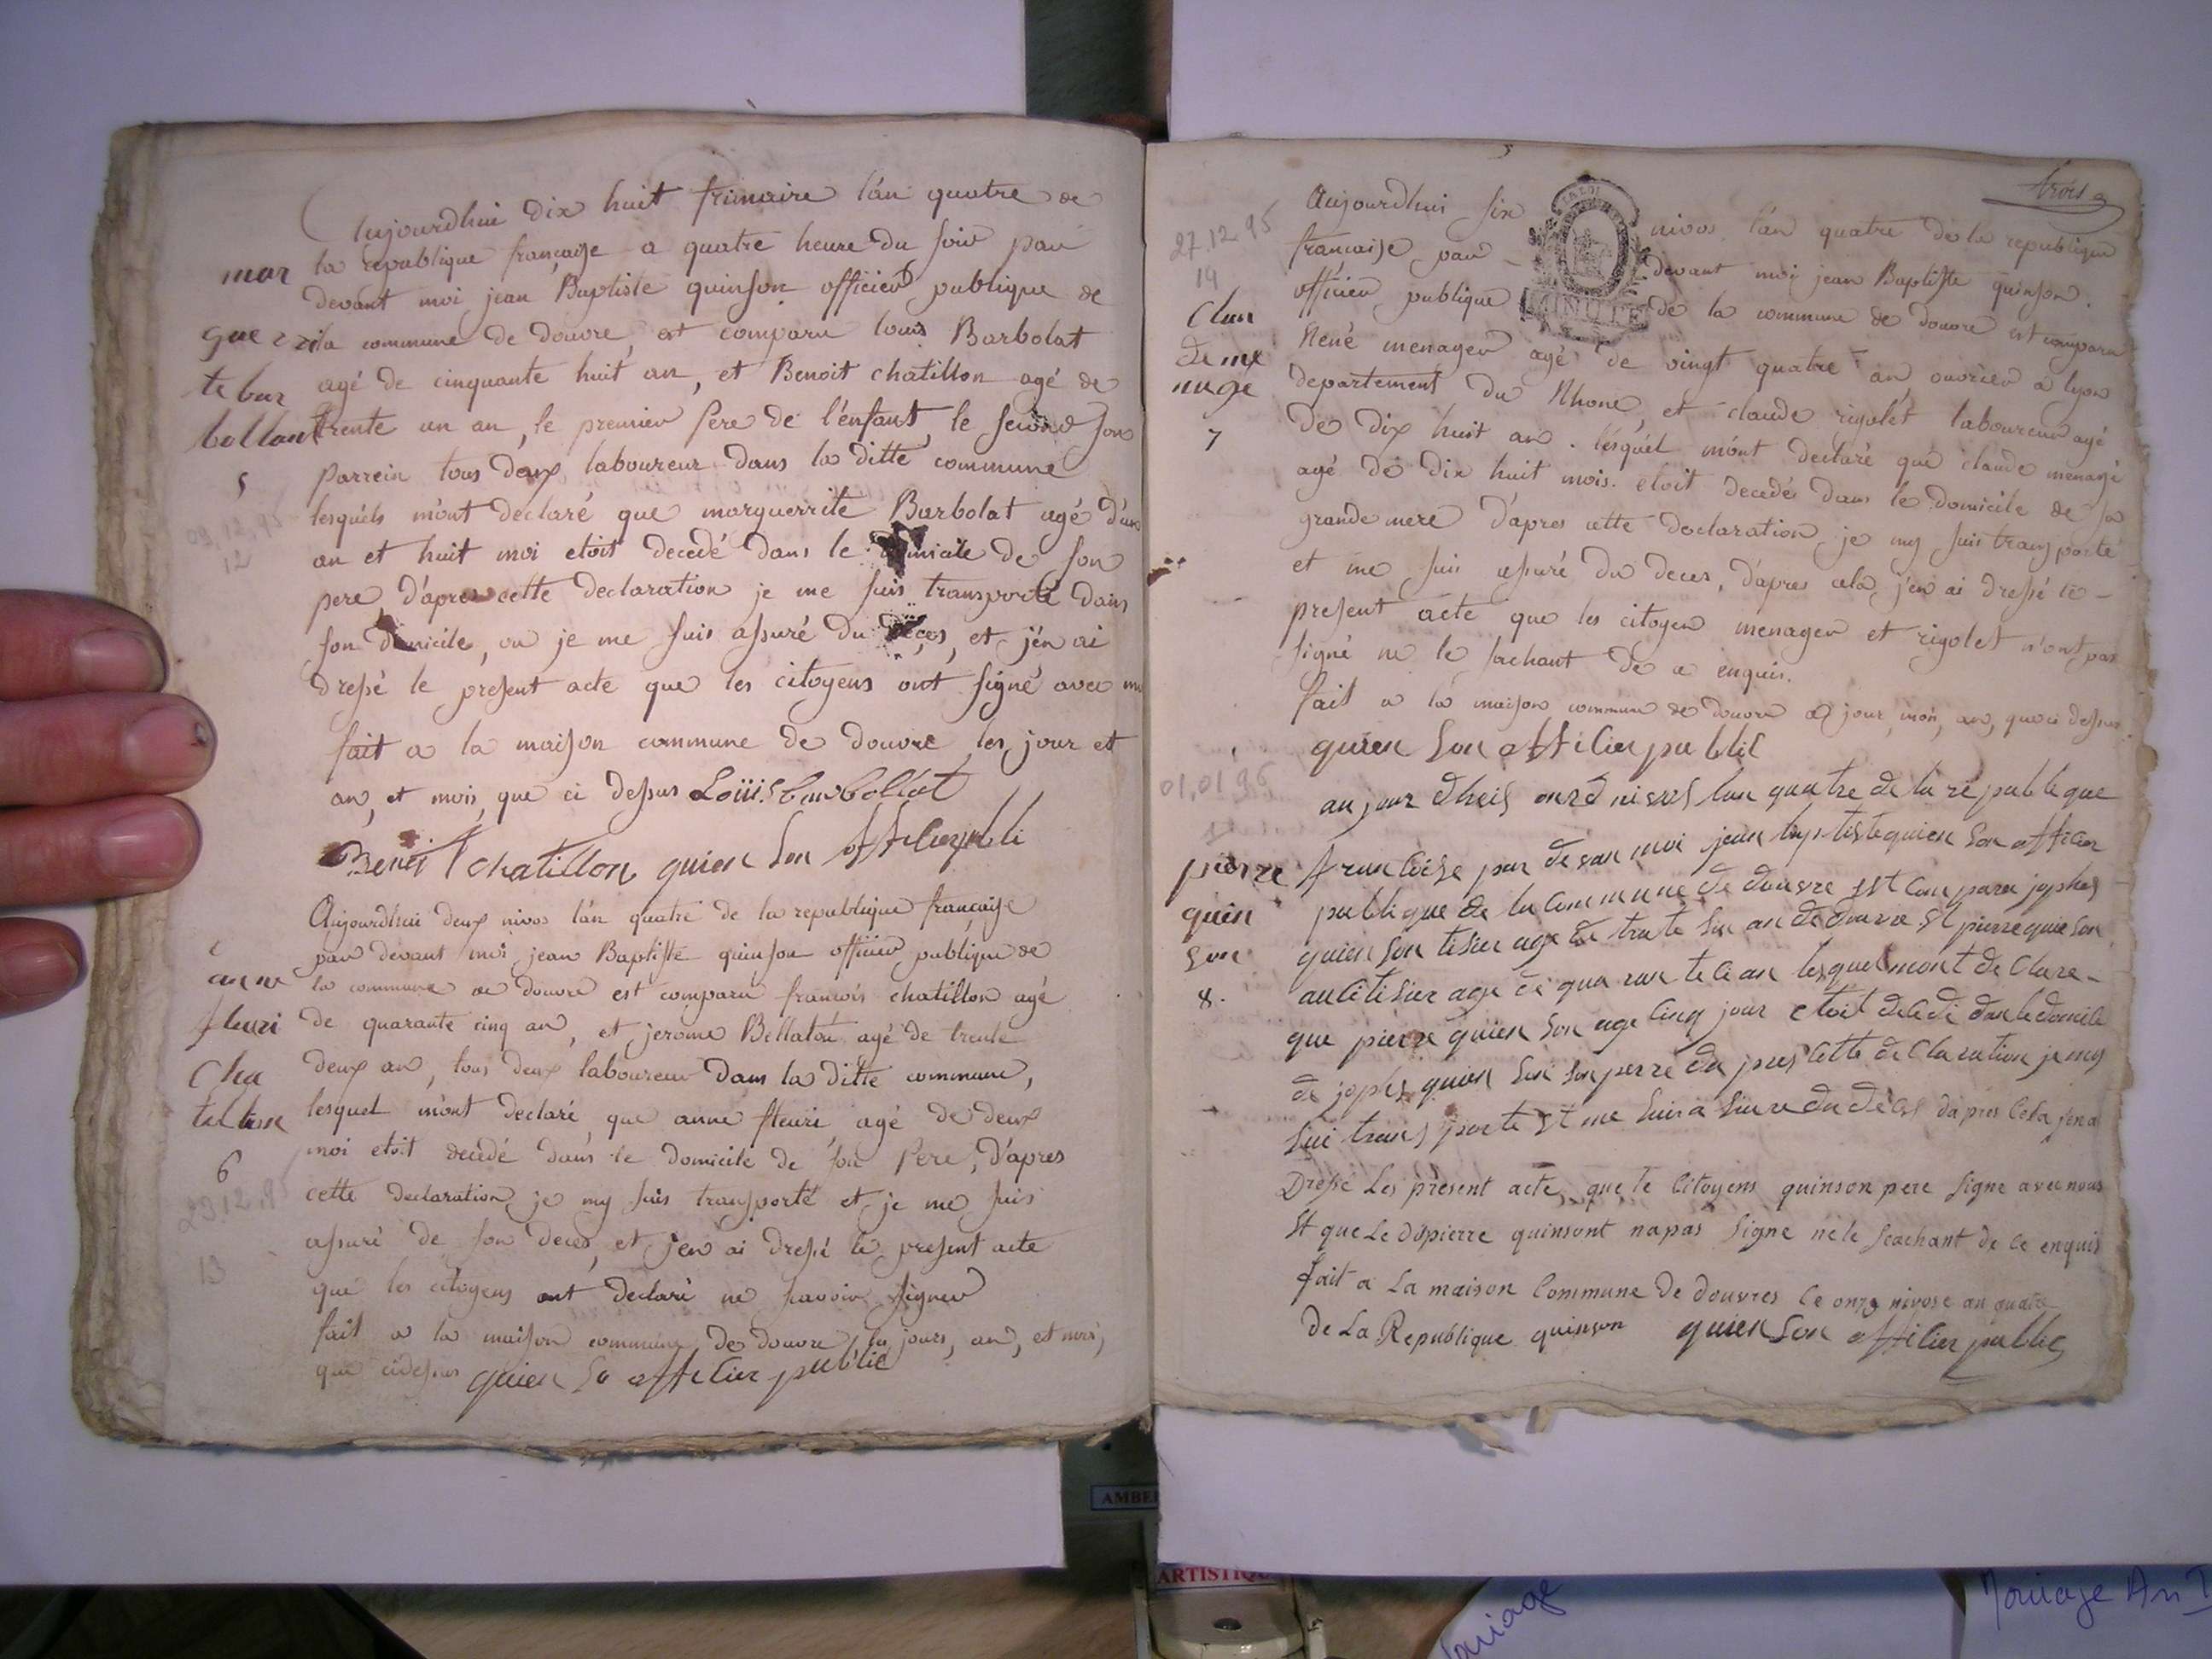 aujourdhui dix huit frimaire l'an quatre de
la republique françaisse a quatre heure du soir par
devant moi jean Baptiste quinson officier publique de
la commune de douvre, est comparu louis Barbolat
agé de cinquante huit an, et Benoit chatillon agé de
trente un an, le premier pere de l'enfant, le second son
parrein tous deux laboureur dans la ditte commune
lesquels m'ont declaré que marguerrite Barbolat agé d'un
an et huit moi etoit decedé dans le domicile de son
pere, d'apres cette declaration je me suis transporté dans
son domicile, ou je me suis assuré du deces, et j'en ai
dressé le present acte que les citoyens ont signé avec
fait a la maison commune de douvre les jour et
an, et mois, que ci dessus Loüis barbollat
Benoit chatillon quien son offi publi
mar
guerri
te bar
bollant
5
09.12.95
12
Aujourdhui deux nivos l'an quatre de la republique françaisse
par devant moi jean Baptiste quinson officier publique de
la commune de douvre est comparu francois chatillon agé
de quarante cinq an, et jerome Billaton agé de trente
deux an, tous deux laboureur dans la ditte commune,
lesquel m'ont declaré que anne fleuri agé de deux
moi etoit decedé dans le domicile de son pere, d'apres
cette declaration je my suis transporté et je me suis
assuré de son deces, et j'en ai dressé le present acte
que les citoyens ont declaré ne savoir signer
fait a la maison commune de douvre les jours, an, et moi,
que cidessus quien so offecier public
anne
fleuri
Cha
6
23.12.9
13
trois
Aujourdhui six nivos l'an quatre de la republique
francaisse par devant moi jean Baptiste quinson
officier publique de la commune de douvre est comparu
René menager agé de vingt quatre an ouvrier a lyon
departement du Rhone, et claude rigolet laboureur agé
de dix huit an. lesquel m'ont declaré que claude menagé
agé de dix huit mois. etoit decedé dans le domicile de sa
grande mere d'apres cette declaration je my suis transporté
et me suis assuré du deces, d'apres cela j'en ai dressé le
present acte que les citoyen menager et rigolet n'ont pas
signé ne le sachant de ce enquis.
fait a la maison commune de douvre jour, moi, an, que ci dessus
quien son officier public
MINUTE
27.12.95
14
Clau
de me
nage
7
au jour dhuis onze nivos lan quatre de la republique
francoise par devan moi jean baptiste quien son officier
publique de la commune de douvre est comparu jophes
quien son tisier age de trante six an de douvre et pierre quienson
aucitisier age de quarante an lesquel mont declare
que pierre quien son age cinq jour etoit decedé dan le domicile
de jophes quien son son perre da pres cette declaration je my
sui trans porte et me suis a sure du deces dapres cela jena
Dressé Les present acte, que le citoyens quinson pere signe avec nous
et que Le dipierre quinsont napas signe ne le scachant de ce enquis
fait a La maison Commune de douvres le onze nivose an quatre
de La Republique quinson quien son officier public
01.01.96
pierre
quin
son
8.
AMBE
ARTISTIQU
Mariage An